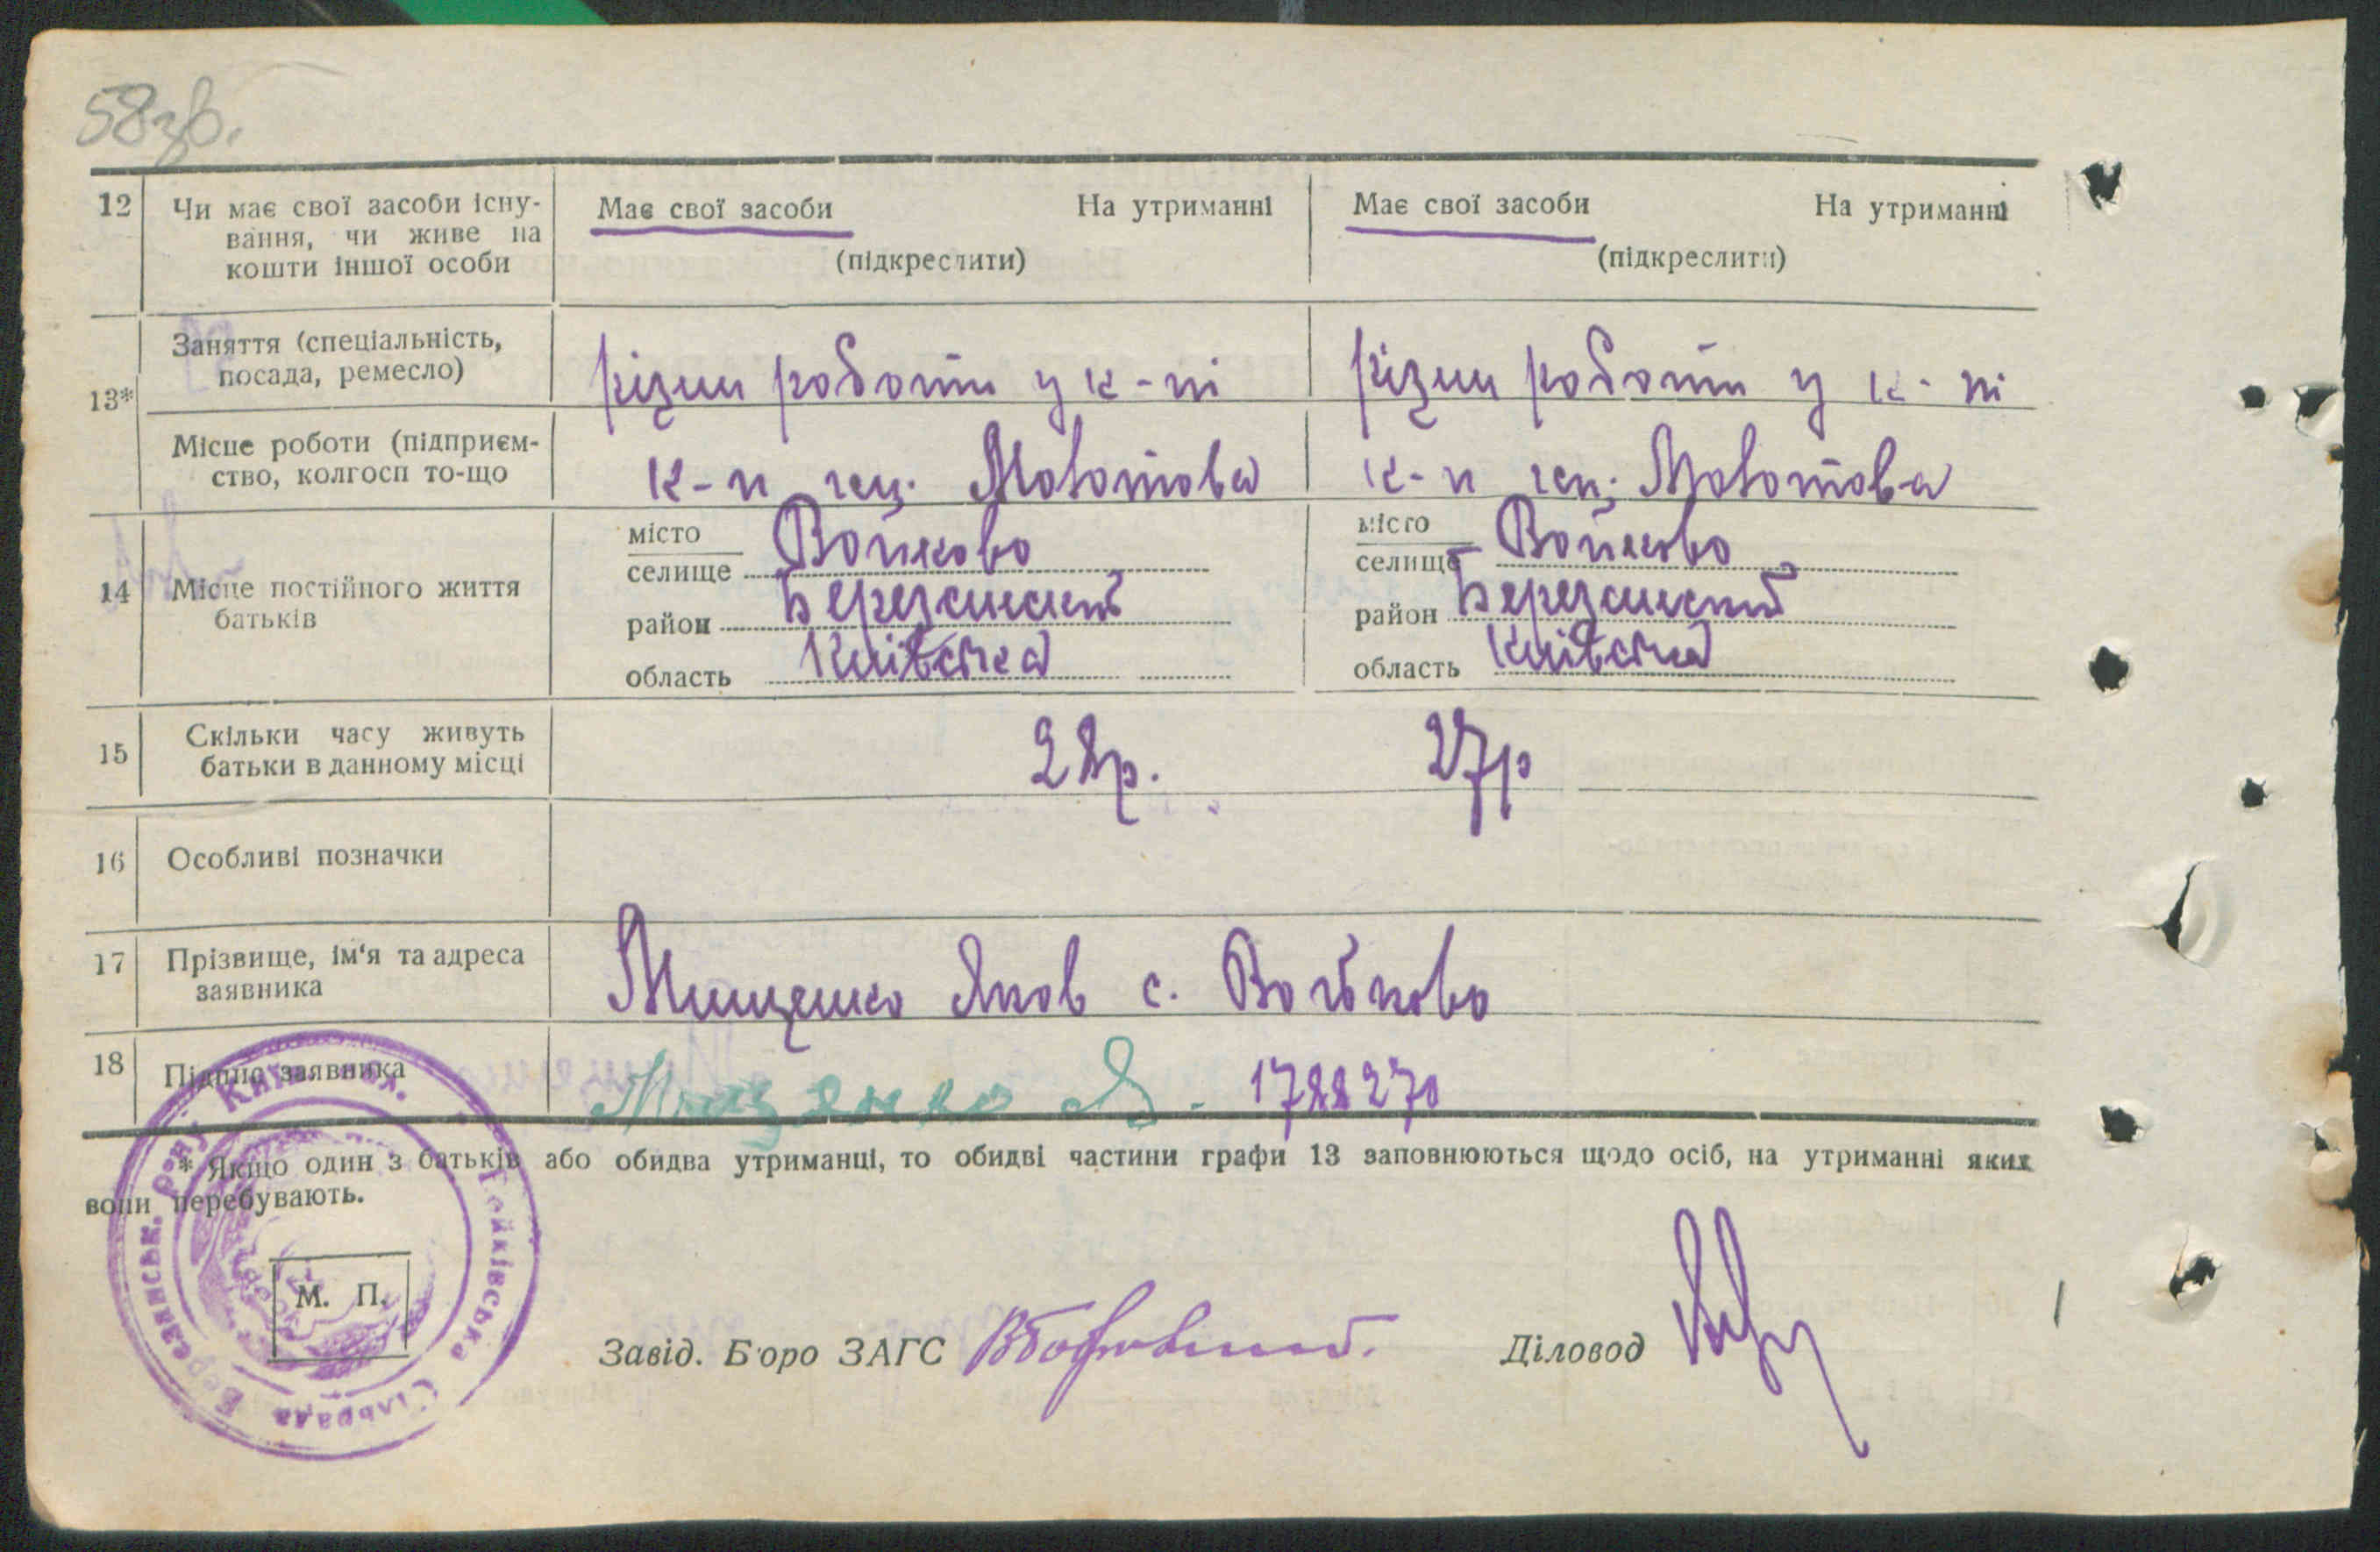 58зв.
12 Чи має свої засоби існу- Має свої засоби На утриманні Має свої засоби На утриманні
вання, чи живе на
кошти іншої особи (підкреслити) (підкреслити)
13* Заняття (спеціальність,
посада, ремесло) різни роботи у к-пі різни роботи у к-пі
Місце роботи (підприєм-
ство, колгосп то-що к-п ім. Молотова к-п ім. Молотова
14 Місце постійного життя
батьків
місто
селище Войково
район Березанский
область Київська
місто
селище Войково
район Березанский
область Київська
15 Скільки часу живуть
батьки в данному місці 28р. 27р
16 Особливі позначки
17 Прізвище, ім'я та адреса
заявника Мищенко Яков с. Войково
18 Підпис заявника Мищенко Я. 1788270
* Якщо один з батьків або обидва утриманці, то обидві частини графи 13 заповнюються щодо осіб, на утриманні яких
вони перебувають.
М. П.
Завід. Бюро ЗАГС Діловод
Сільрада